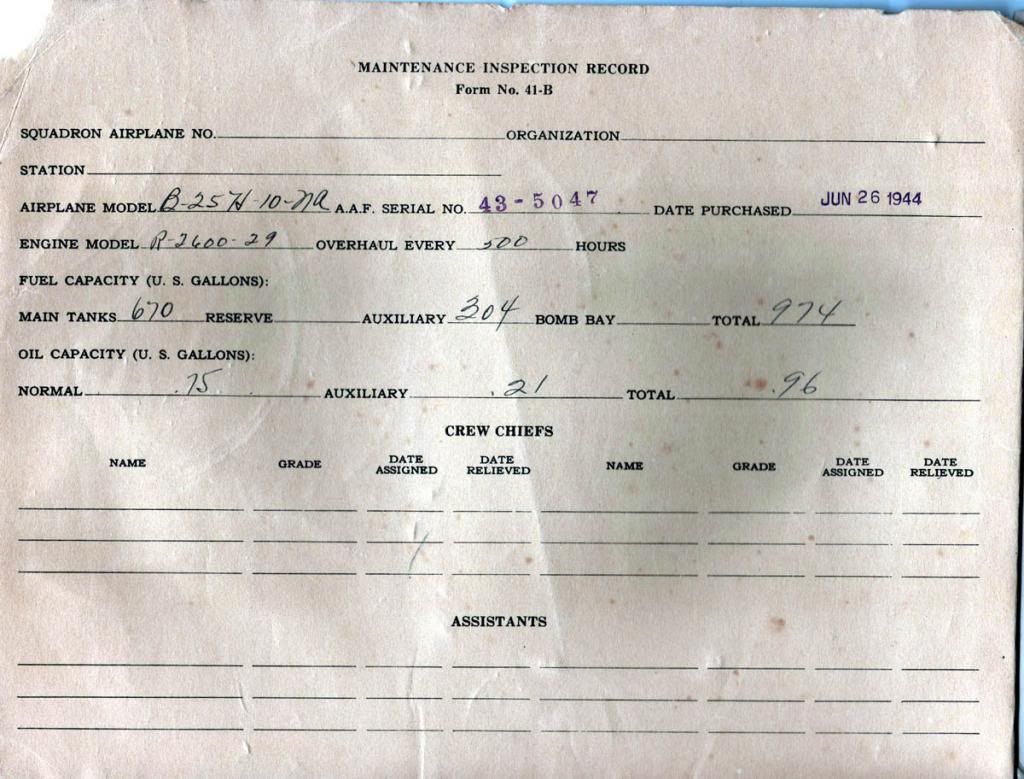 MAINTENANCE INSPECTION RECORD
Form No. 41-B
SQUADRON AIRPLANE NO. ORGANIZATION
STATION
AIRPLANE MODEL B-25H-10-NA A.A.F. SERIAL NO. 43-5047 DATE PURCHASED JUN 26 1944
ENGINE MODEL R-2600-29 OVERHAUL EVERY 500 HOURS
FUEL CAPACITY (U. S. GALLONS):
MAIN TANKS 670 RESERVE AUXILIARY 304 BOMB BAY TOTAL 974
OIL CAPACITY (U. S. GALLONS):
NORMAL .75 AUXILIARY .21 TOTAL .96
CREW CHIEFS
NAME GRADE DATE ASSIGNED DATE RELIEVED NAME GRADE DATE ASSIGNED DATE RELIEVED
ASSISTANTS